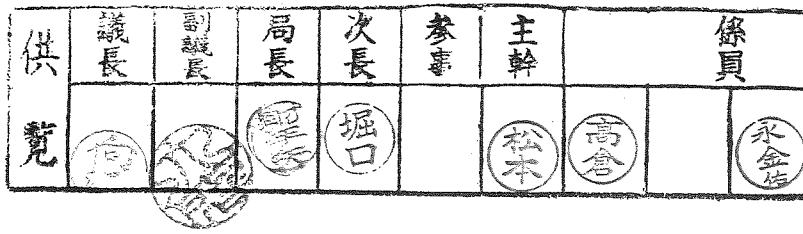 供覧
議長
副議長
局長
次長
参事
主幹
係員
堀口
松本
高倉
永金佑